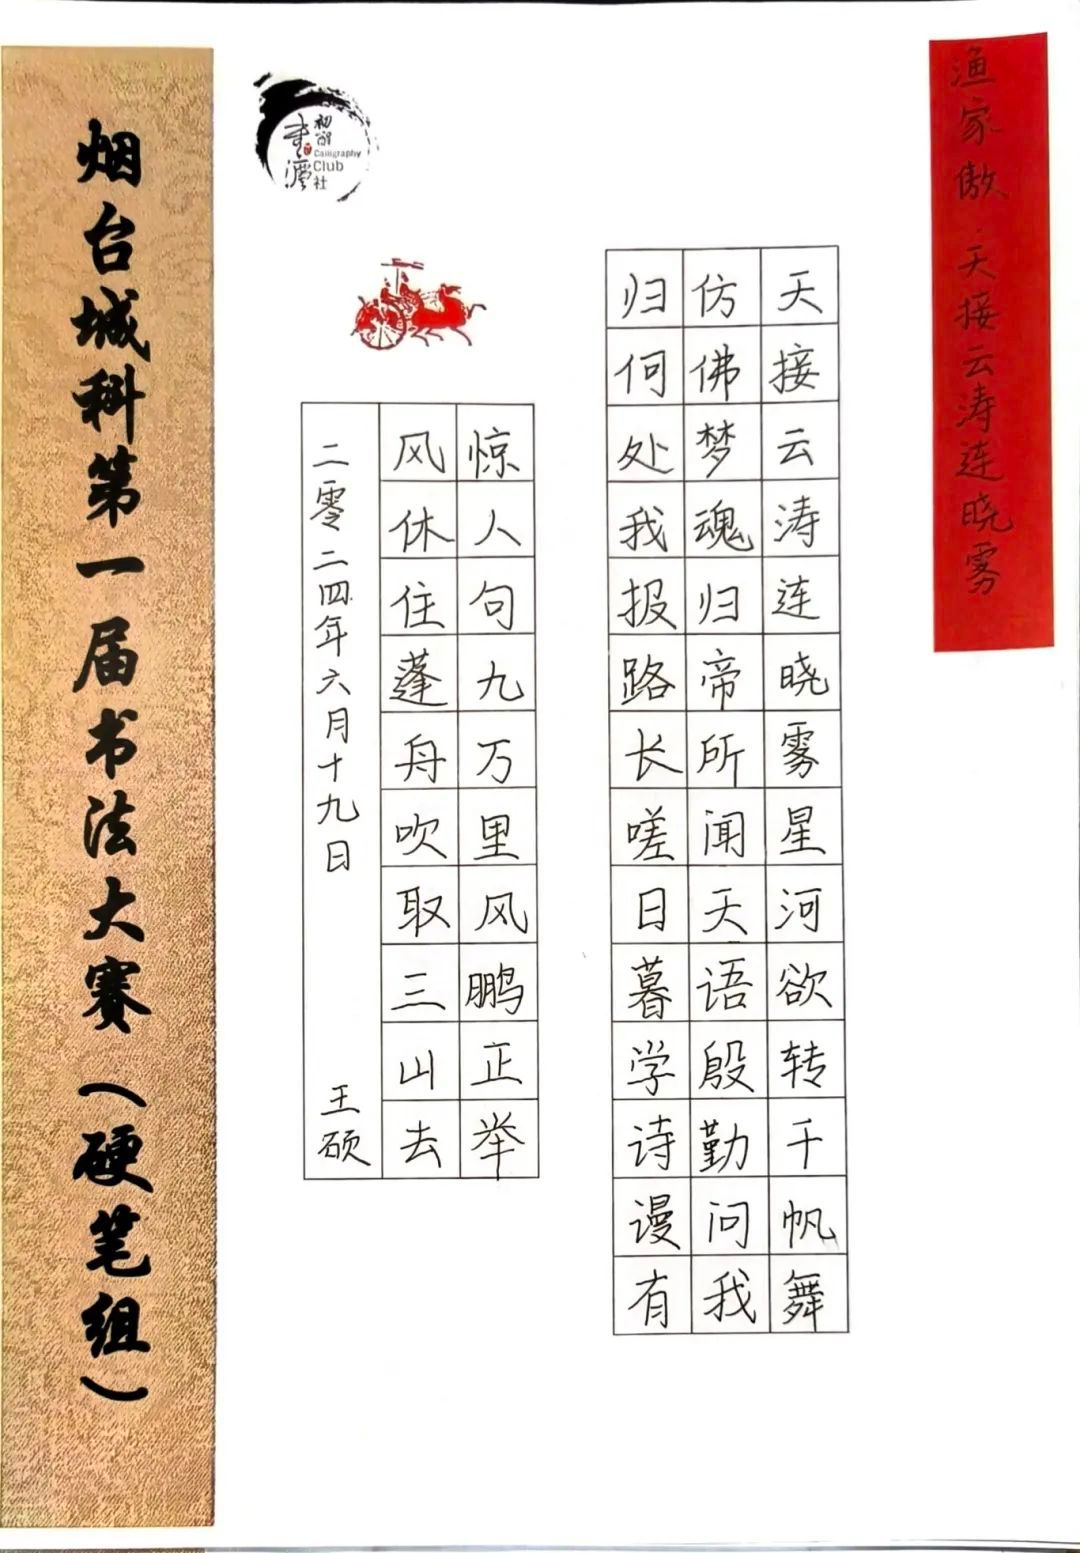 渔家傲·天接云涛连晓雾
天接云涛连晓雾星河欲转千帆舞
仿佛梦魂归帝所闻天语殷勤问我
归何处我报路长嗟日暮学诗谩有
惊人句九万里风鹏正举
风休住蓬舟吹取三山去
二零二四年六月十九日 王硕
Calligraphy
Club
社
烟台城科第一届书法大赛（硬笔组）